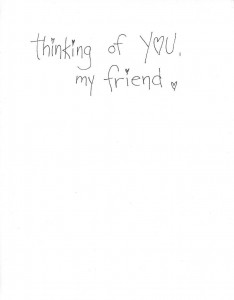 thinking of YOU,
my friend.